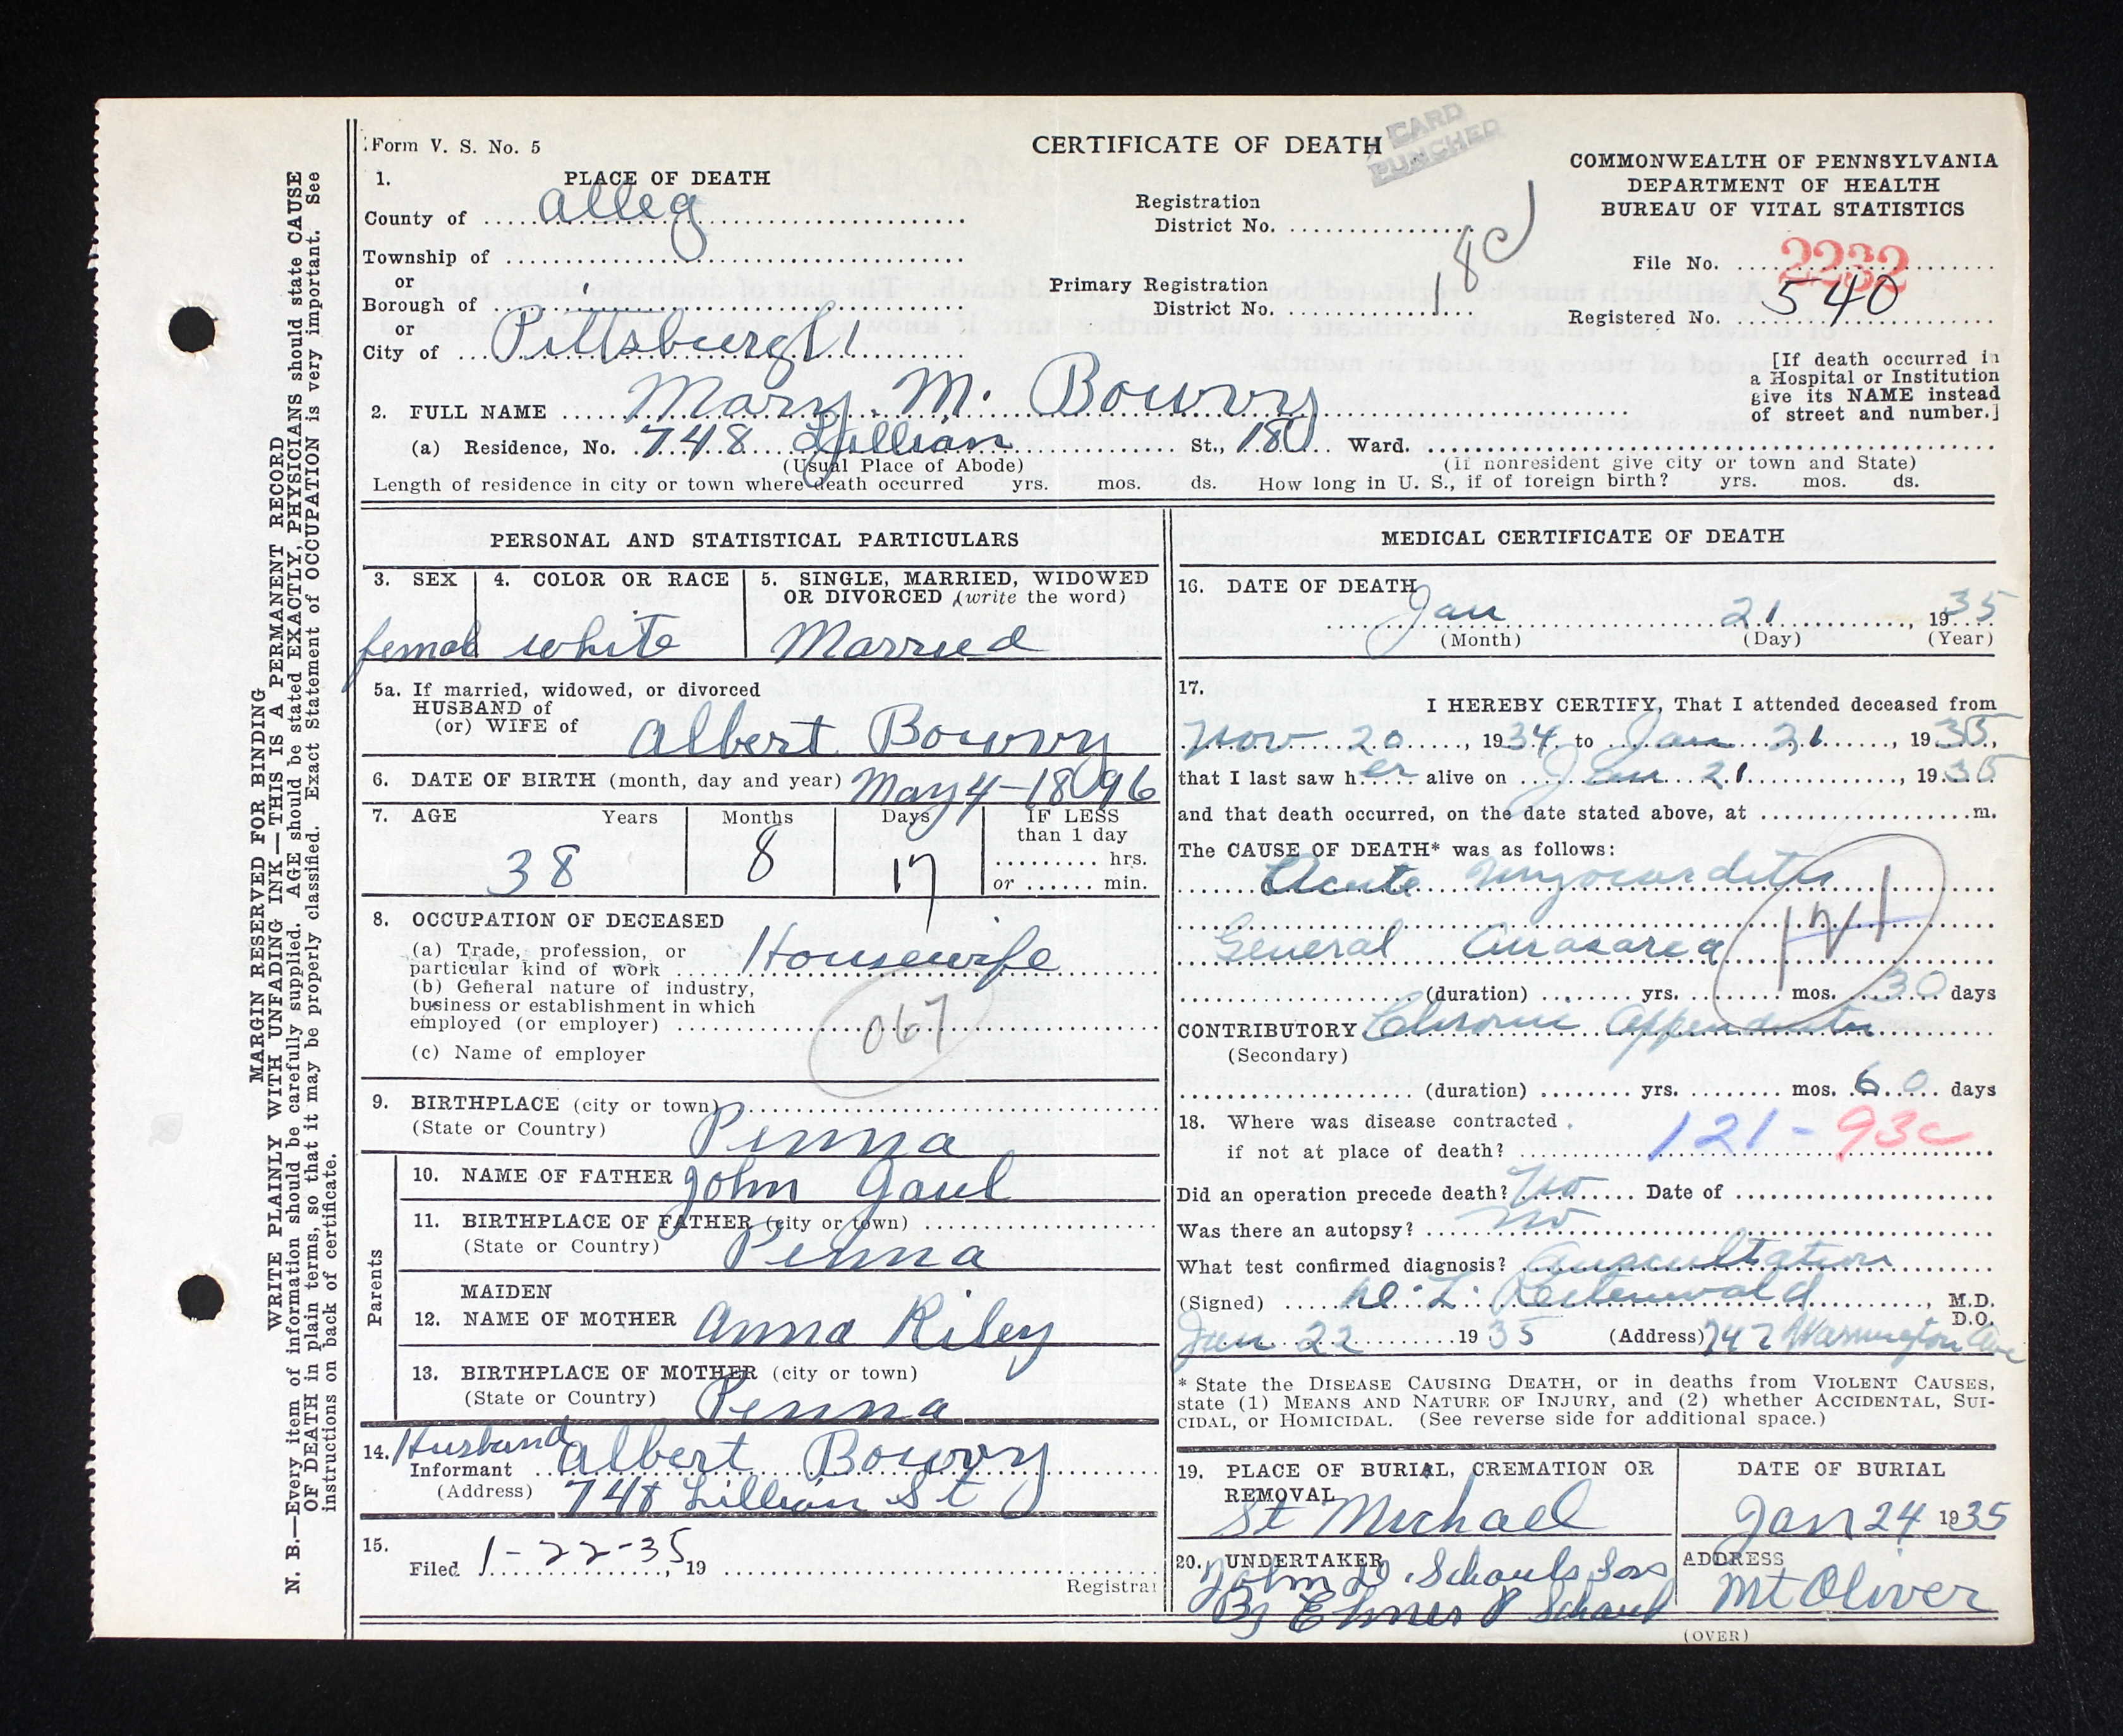 Form V. S. No. 5
CERTIFICATE OF DEATH
CARD
PUNCHED
COMMONWEALTH OF PENNSYLVANIA
DEPARTMENT OF HEALTH
BUREAU OF VITAL STATISTICS
1. PLACE OF DEATH
County of Alleg
Township of
or
Borough of
or
City of Pittsburgh
Registration
District No.
Primary Registration
District No.
18
File No. 2232
Registered No. 540
[If death occurred in
a Hospital or Institution
give its NAME instead
of street and number.]
2. FULL NAME Mary M. Bowry
(a) Residence, No. 748 Lillian St., 18 Ward.
(Usual Place of Abode) (If nonresident give city or town and State)
Length of residence in city or town where death occurred yrs. mos. ds. How long in U. S., if of foreign birth? yrs. mos. ds.
PERSONAL AND STATISTICAL PARTICULARS
3. SEX 4. COLOR OR RACE 5. SINGLE, MARRIED, WIDOWED
OR DIVORCED (write the word)
female white Married
5a. If married, widowed, or divorced
HUSBAND of
(or) WIFE of Albert Bowry
6. DATE OF BIRTH (month, day and year) May 4-1896
7. AGE Years Months Days IF LESS
than 1 day
38 8 17 hrs.
or min.
8. OCCUPATION OF DECEASED
(a) Trade, profession, or
particular kind of work Housewife
(b) General nature of industry,
business or establishment in which
employed (or employer)
067
(c) Name of employer
9. BIRTHPLACE (city or town)
(State or Country) Penna
Parents
10. NAME OF FATHER John Gaul
11. BIRTHPLACE OF FATHER (city or town)
(State or Country) Penna
MAIDEN
12. NAME OF MOTHER Anna Riley
13. BIRTHPLACE OF MOTHER (city or town)
(State or Country) Penna
14. Husband
Informant Albert Bowry
(Address) 748 Lillian St
15.
Filed 1-22-35, 19
Registrar
MEDICAL CERTIFICATE OF DEATH
16. DATE OF DEATH
Jan 21, 1935
(Month) (Day) (Year)
17.
I HEREBY CERTIFY, That I attended deceased from
Nov 20, 1934 to Jan 21, 1935,
that I last saw her alive on Jan 21, 1935
and that death occurred, on the date stated above, at m.
The CAUSE OF DEATH* was as follows:
Acute Myocarditis
General Anasarca
121
(duration) yrs. mos. 30 days
CONTRIBUTORY Chronic Appendicitis
(Secondary)
(duration) yrs. mos. 60 days
18. Where was disease contracted
if not at place of death?
121-93c
Did an operation precede death? No Date of
Was there an autopsy? No
What test confirmed diagnosis? Auscultation
(Signed) M.D.
D.O.
Jan 22 1935 (Address) 747 Warrington Ave
* State the DISEASE CAUSING DEATH, or in deaths from VIOLENT CAUSES,
state (1) MEANS AND NATURE OF INJURY, and (2) whether ACCIDENTAL, SUI-
CIDAL, or HOMICIDAL. (See reverse side for additional space.)
19. PLACE OF BURIAL, CREMATION OR
REMOVAL
St Michael
DATE OF BURIAL
Jan 24 1935
20. UNDERTAKER
John D. Schauls Sons
By Elmer P Schaul
ADDRESS
Mt Oliver
(OVER)
MARGIN RESERVED FOR BINDING
WRITE PLAINLY WITH UNFADING INK—THIS IS A PERMANENT RECORD
N. B.—Every item of information should be carefully supplied. AGE should be stated EXACTLY, PHYSICIANS should state CAUSE
OF DEATH in plain terms, so that it may be properly classified. Exact Statement of OCCUPATION is very important. See
instructions on back of certificate.